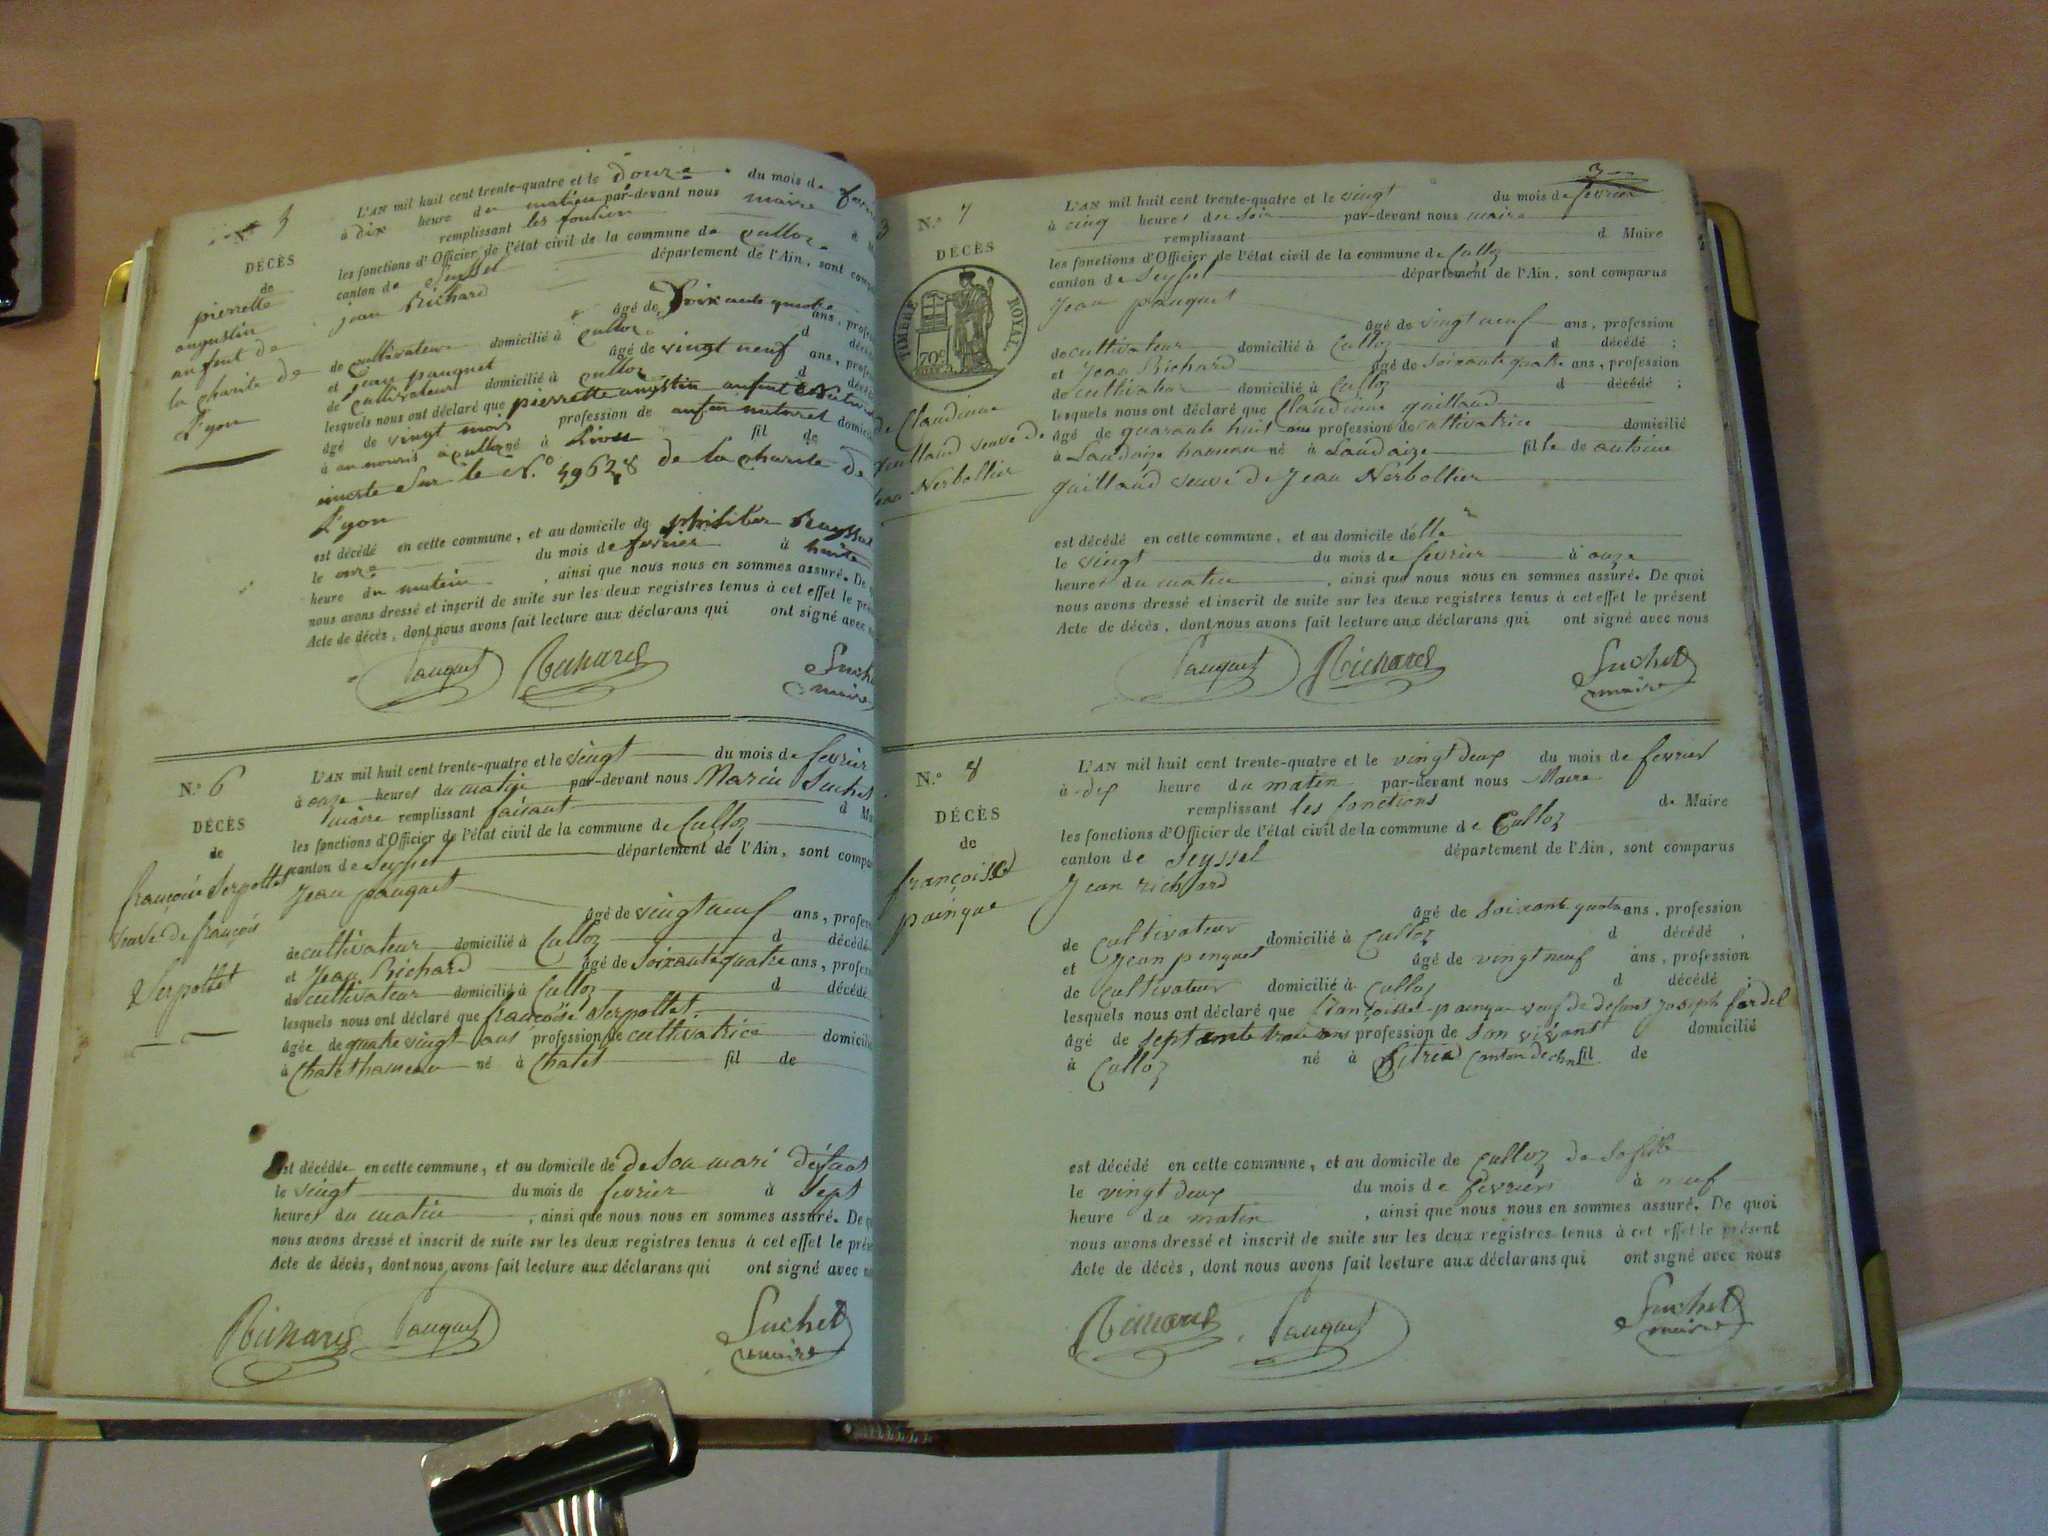 N.º 5
DÉCÈS
de
pierrette
augustin
enfent de
la charite de
Lyon
L'AN mil huit cent trente-quatre et le douze du mois de
à dix heure du matin par-devant nous maire
remplissant les fontion
les fonctions d'Officier de l'état civil de la commune de culloz
canton de Seyssel département de l'Ain, sont comp
jean Richard
âgé de Soixante quatre ans, profe
de cultivateur domicilié à Culloz d décéd
et jean pauguet âgé de vingt neuf ans, profe
de cultivateur domicilié à culloz d décéd
lesquels nous ont déclaré que pierrette augustin enfent
âgé de vingt mois profession de enfen naturel domici
à en nouris a culloz né à Lion fil de
inscrite Sur le N.º 49628 de la charite de
Lyon
est décédé en cette commune, et au domicile de philiber
le onze du mois de fevrier à huite
heure du matin, ainsi que nous nous en sommes assuré. De q
nous avons dressé et inscrit de suite sur les deux registres tenus à cet effet le pré
Acte de décès, dont nous avons fait lecture aux déclarans qui ont signé avec n
Pauguet Richard Suche
maire
N.º 6
DÉCÈS
de
françoise Serpollet
veuve de françois
Serpollet
L'AN mil huit cent trente-quatre et le vingt du mois de fevrier
à onze heures du matin par-devant nous Marin Suchet
maire remplissant faisant d Ma
les fonctions d'Officier de l'état civil de la commune de Culloz
canton de Seyssel département de l'Ain, sont compa
Jean pauguet
âgé de vingt neuf ans, profes
de cultivateur domicilié à Culloz d décédé
et Jean Richard âgé de Soixante quatre ans, profes
de cultivateur domicilié à Culloz d décédé
lesquels nous ont déclaré que françoise Serpollet
âgée de quatre vingt ans profession de cultivatrice domicili
à Chatel hameau né à Chatel fil de
est décédée en cette commune, et au domicile de de Son mari défunt
le vingt du mois de fevrier à Sept
heures du matin, ainsi que nous nous en sommes assuré. De q
nous avons dressé et inscrit de suite sur les deux registres tenus à cet effet le prés
Acte de décès, dont nous avons fait lecture aux déclarans qui ont signé avec n
Richard Pauguet Suchet
maire
3
N.º 7
DÉCÈS
TIMBRE ROYAL
70c
de Claudine
guillaud veuve de
Jean Nerbollier
L'AN mil huit cent trente-quatre et le vingt du mois de fevrier
à cinq heures du Soir par-devant nous maire
remplissant d Maire
les fonctions d'Officier de l'état civil de la commune de Culloz
canton de Seyssel département de l'Ain, sont comparus
Jean pauguet
âgé de vingt neuf ans, profession
de cultivateur domicilié à Culloz d décédé;
et Jean Richard âgé de Soixante quatre ans, profession
de cultivateur domicilié à Culloz d décédé;
lesquels nous ont déclaré que Claudine guillaud
âgé de quarante huit ans profession de cultivatrice domicilié
à Landaize hameau né à Landaize fille de antoine
guillaud veuve de Jean Nerbollier
est décédé en cette commune, et au domicile délle
le vingt du mois de fevrier à onze
heures du matin, ainsi que nous nous en sommes assuré. De quoi
nous avons dressé et inscrit de suite sur les deux registres tenus à cet effet le présent
Acte de décès, dont nous avons fait lecture aux déclarans qui ont signé avec nous
Pauguet Richard Suchet
maire
N.º 8
DÉCÈS
de
françoise
painque
L'AN mil huit cent trente-quatre et le vingt deux du mois de fevrier
à dix heure du matin par-devant nous Maire
remplissant les fonctions de Maire
les fonctions d'Officier de l'état civil de la commune de Culloz
canton de Seyssel département de l'Ain, sont comparus
Jean richard
âgé de soixante quatre ans, profession
de cultivateur domicilié à Culloz d décédé,
et Jean penguet âgé de vingt neuf ans, profession
de cultivateur domicilié à Culloz d décédé
lesquels nous ont déclaré que françoise painque veuf de defunt joseph fardel
âgé de septante trois ans profession de Son vivant domicilié
à Culloz né à canton de fil de
est décédé en cette commune, et au domicile de Culloz de Sa fille
le vingt deux du mois de fevrier à neuf
heure du matin, ainsi que nous nous en sommes assuré. De quoi
nous avons dressé et inscrit de suite sur les deux registres tenus à cet effet le présent
Acte de décès, dont nous avons fait lecture aux déclarans qui ont signé avec nous
Richard Pauguet Suchet
maire